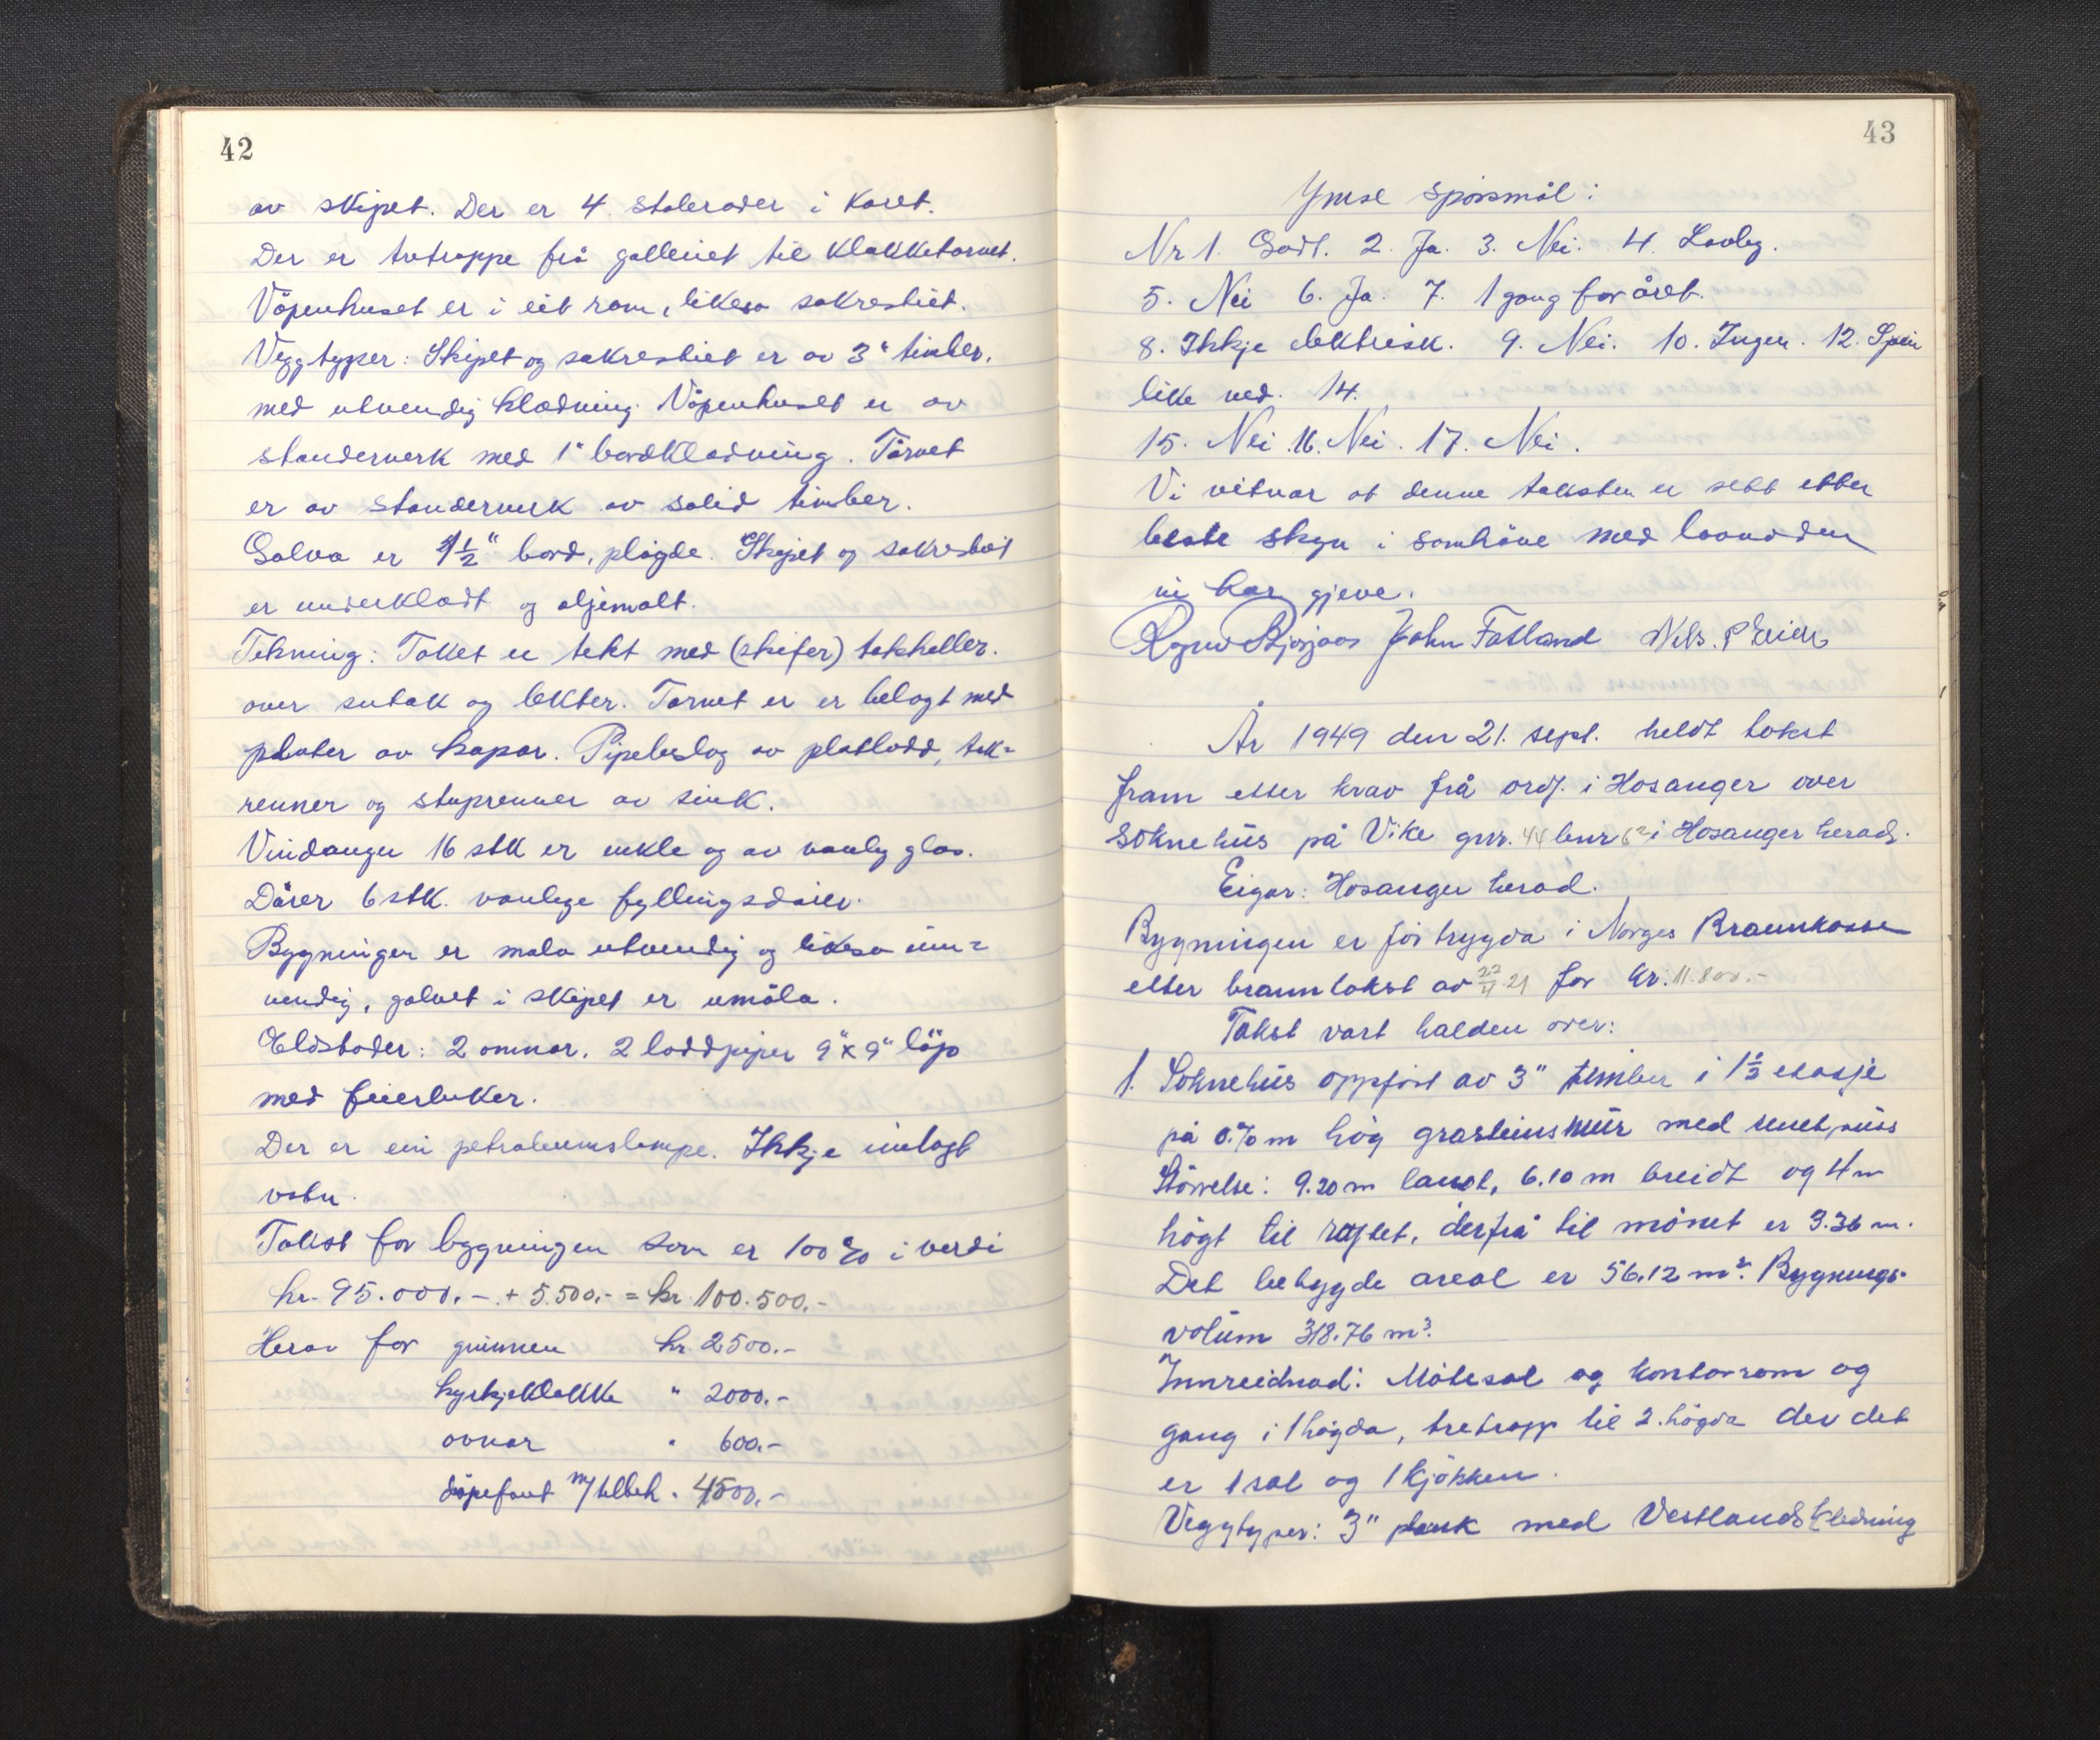 42
av skipet. Der er 4 stolerader i koret.
Der er tretrappe frå galleriet til klokketornet.
Våpenhuset er i eit rom, likeso sakrestiet.
Veggtyper: Skipet og sakrestiet er av 3" timber,
med utvendig klædning. Våpenhuset er av
standerverk med 1" bordklædning. Tårnet
er av standerverk av solid timber.
Golva er 1 1/2" bord, pløgde. Skipet og sakrestiet
er underklædt og oljemalt.
Tekning: Taket er tekt med (skifer) takheller.
over sutak og lekter. Tornet er er belagt med
plater av kopar. Pipebeslag av platlodd, tak=
renner og stuprenner av sink.
Vindauger 16 stk er enkle og av vanleg glas.
Dører 6 stk. vanlege fyllingsdører.
Bygningen er mala utvendig og likeso inn=
vendig, golvet i skipet er umåla.
Eldstader: 2 omnar. 2 loddpiper 9"x9" löp
med feierluker.
Der er ein petroleumslampe. Ikkje innlagt
vatn.
Takst for bygningen som er 100% i verdi
kr. 95.000.- + 5.500.- = kr. 100.500.-
Herav for grunnen kr. 2500.-
kyrkjeklokke " 2000.-
ovnar " 600.-
döpefont m/ tilbeh. " 4500.-
43
Ymse spörsmål:
Nr 1. Godt. 2. Ja. 3. Nei. 4. Lovleg.
5. Nei 6. Ja. 7. 1 gong for året.
8. Ikkje elektrisk. 9. Nei. 10. Ingen. 12.
like ved. 14.
15. Nei. 16. Nei. 17. Nei.
Vi vitnar at denne taksten er sett etter
beste skyn i samhöve med lovnaden
vi har gjeve.
John Fotland Nils. P
År 1949 den 21. sept. heldt takst
fram etter krav frå ordf. i Hosanger over
soknehus på Vike gnr. 44 bnr 62 i Hosanger herad.
Eigar: Hosanger herad.
Bygningen er för trygda i Norges Brannkasse
etter branntakst av 22/4 21 for kr. 11.800.-
Takst vart halden over:
1. Soknehus oppfört av 3" timber i 1 1/2 etasje
på 0.70 m hög grasteinsmur med sement puss
Störrelse: 9.20 m langt, 6.10 m breidt og 4 m
högt til raftet, derfrå til mönet er 3.36 m.
Det bebygde areal er 56.12 m². Bygnings-
volum 318.76 m³.
Innreidnad: Mötesal og kontorrom og
gang i 1 högda, tretrapp til 2. högda der det
er 1 sal og 1 kjökken.
Veggtyper: 3" plank med Vestlandskledning